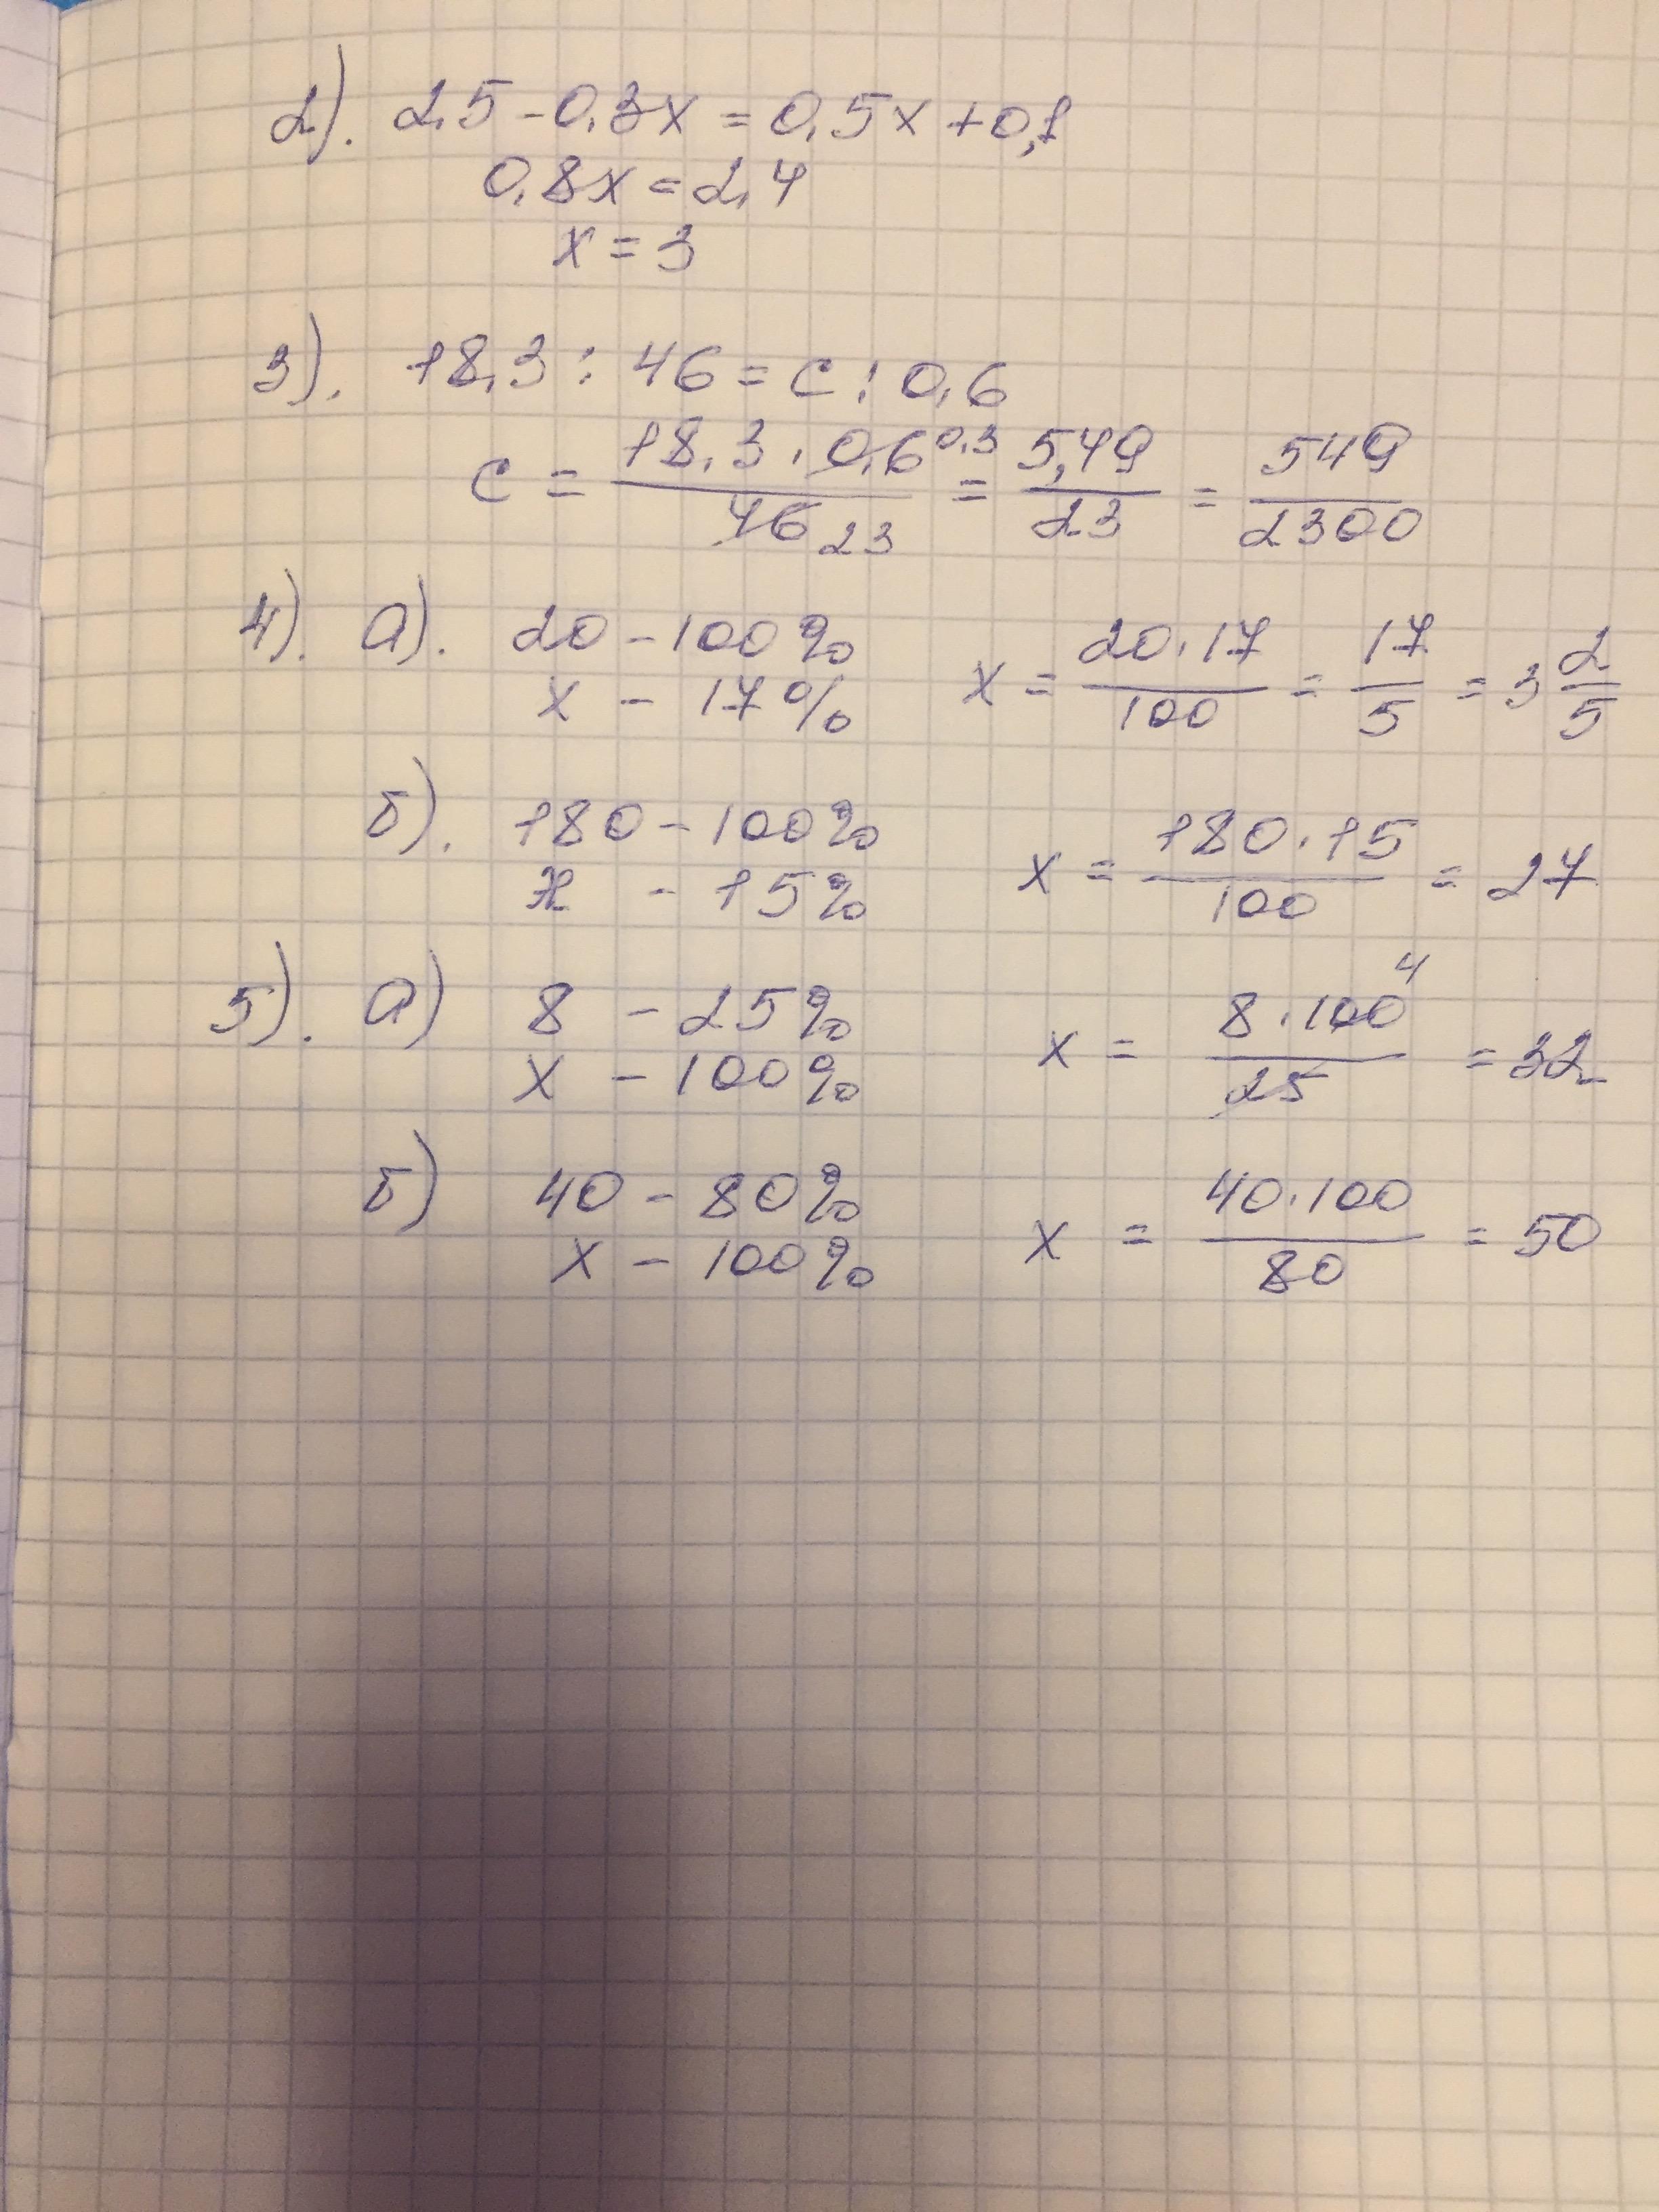 2). 2,5 - 0,3x = 0,5x + 0,1
0,8x = 2,4
x = 3
3). 18,3 : 46 = c : 0,6
c = (18,3 · 0,6 0,3)/(46 23) = 5,49/23 = 549/2300
4). а). 20 - 100%
x - 17%
x = (20 · 17)/100 = 17/5 = 3 2/5
б). 180 - 100%
x - 15%
x = (180 · 15)/100 = 27
5). а) 8 - 25%
x - 100%
x = (8 · 100 4)/25 = 32
б) 40 - 80%
x - 100%
x = (40 · 100)/80 = 50